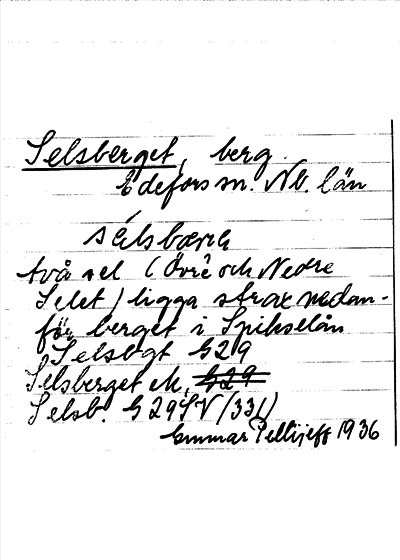 Selsberget, berg.
Edefors sn. Nb. län
sélsbærg
två sel (Övre och Nedre
Selet) ligga strax nedan-
för berget i Spikselån
Selsbgt G29
Selsberget ek. G29
Selsb. G29SV (331)
Gunnar Pellijeff 1936